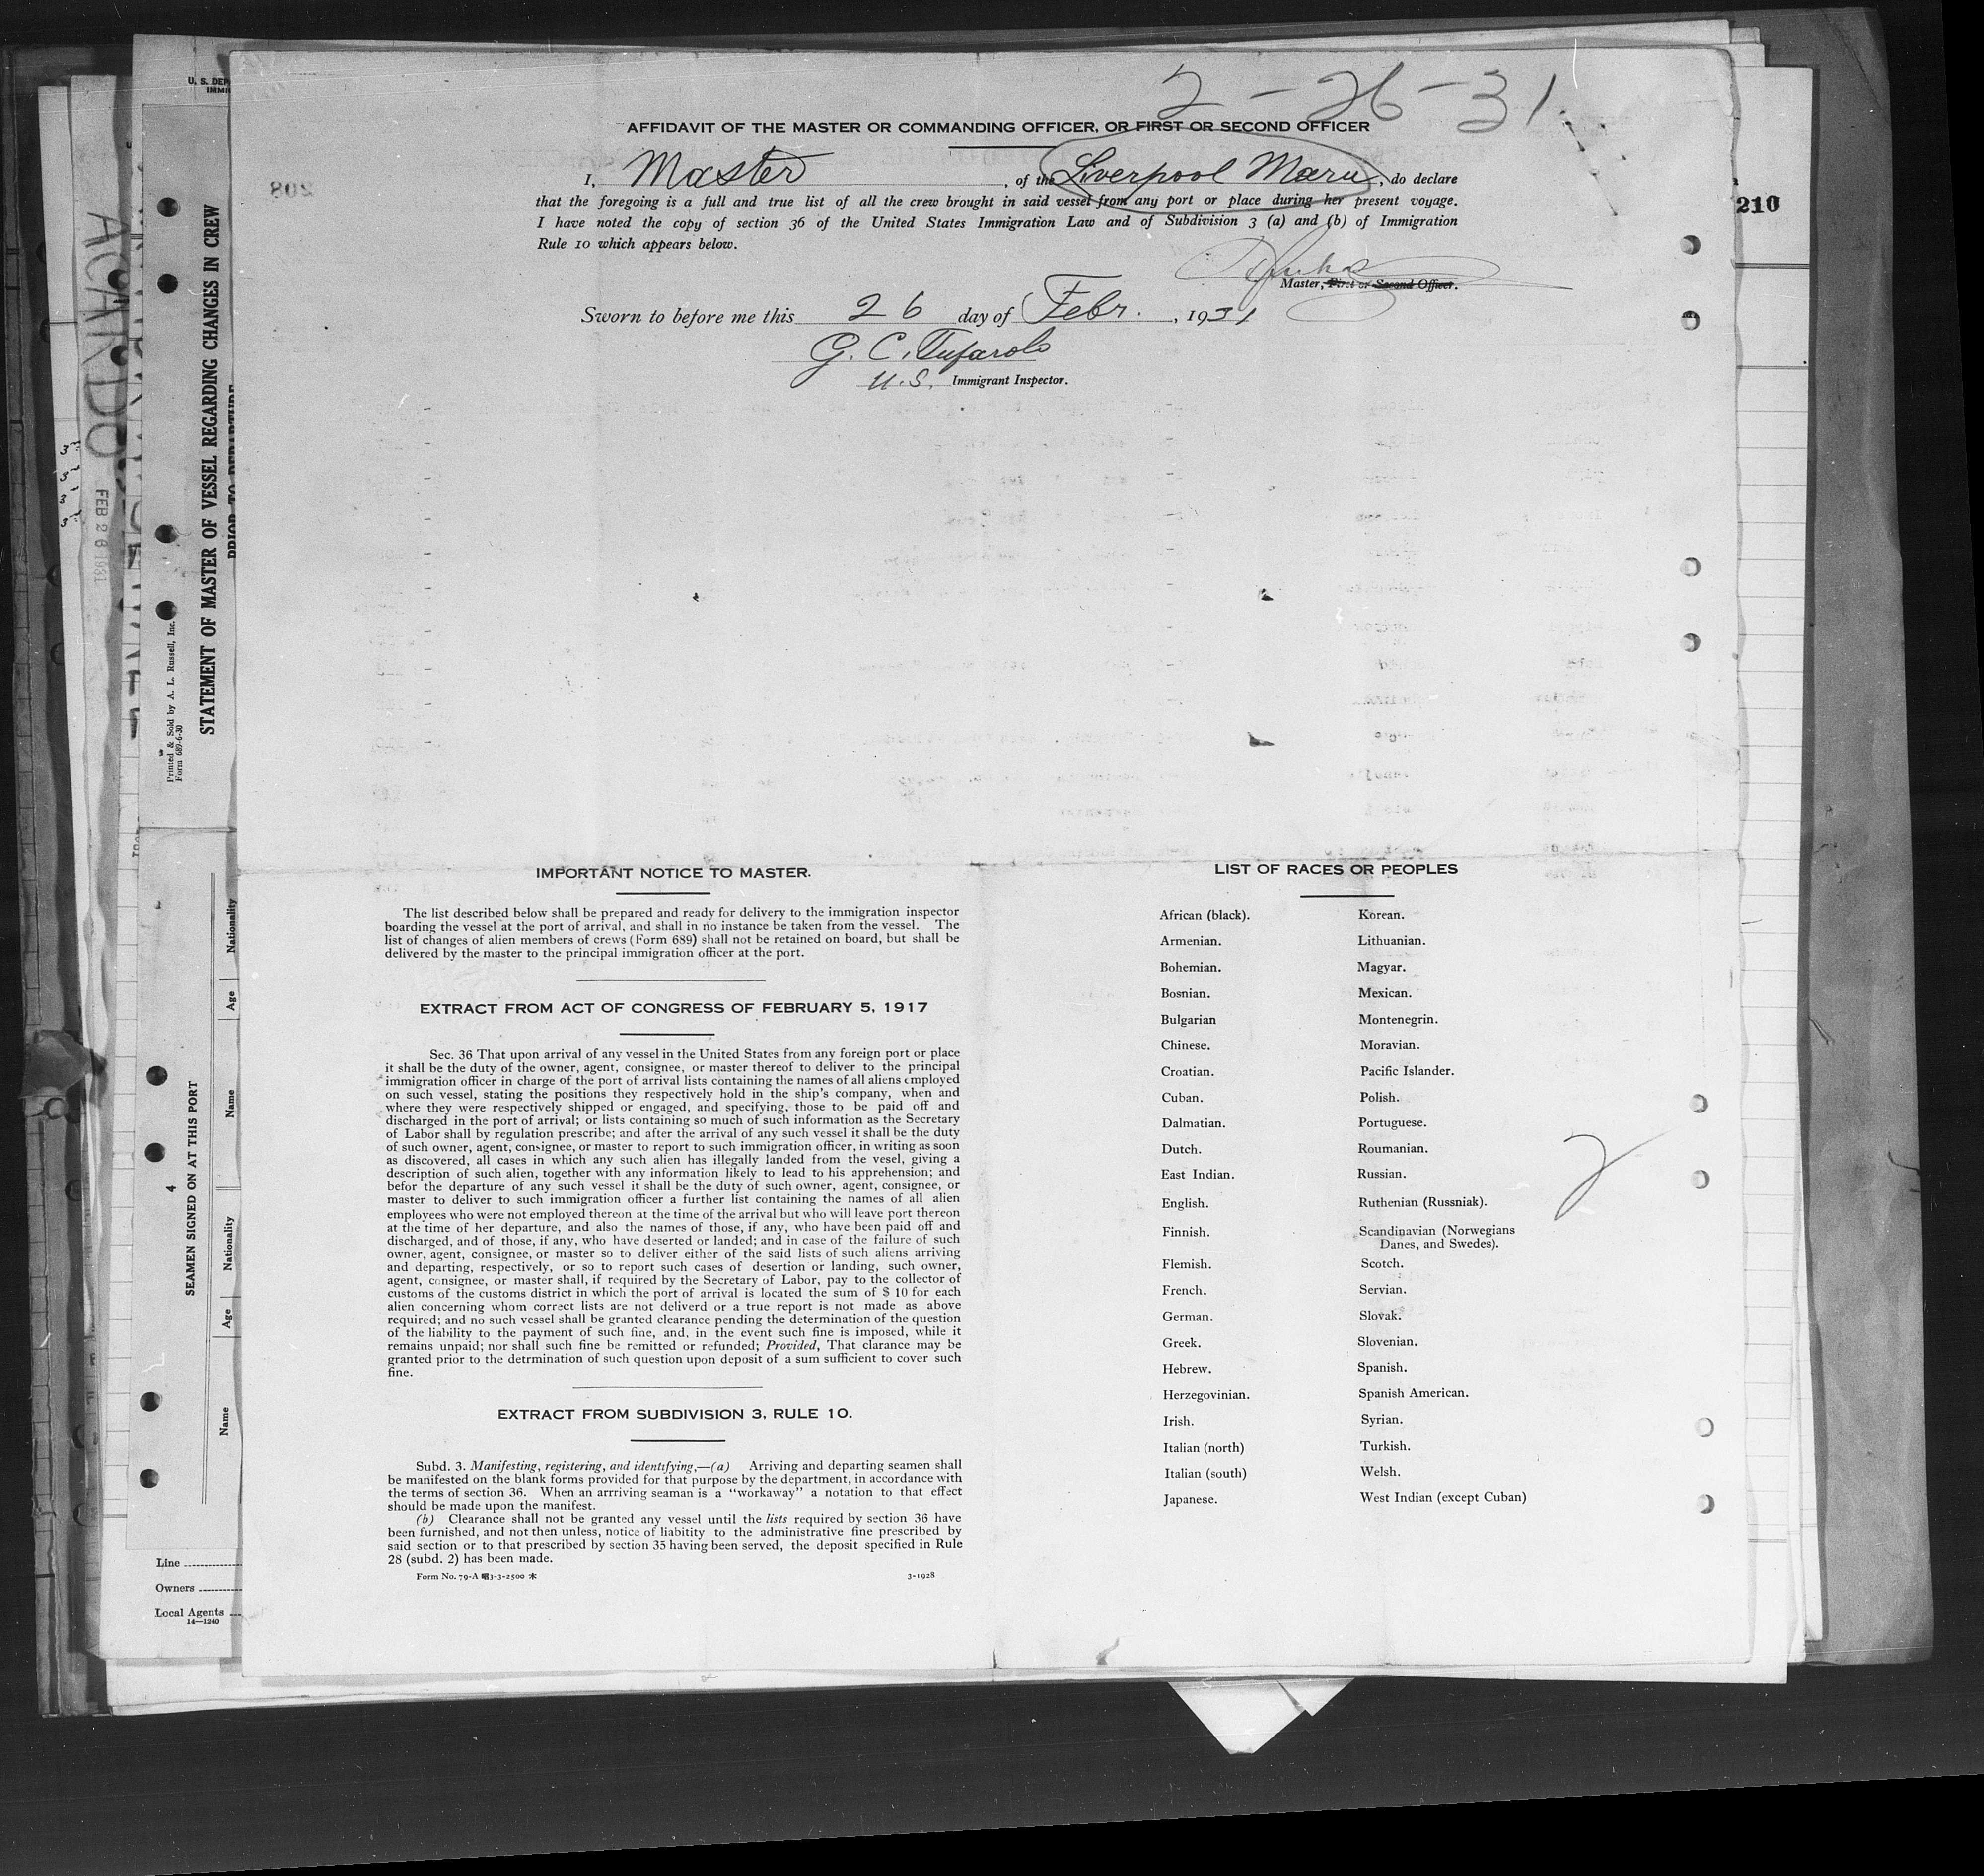 2-26-31
AFFIDAVIT OF THE MASTER OR COMMANDING OFFICER, OR FIRST OR SECOND OFFICER
I, Master, of the Liverpool Maru, do declare
that the foregoing is a full and true list of all the crew brought in said vessel from any port or place during her present voyage.
I have noted the copy of section 36 of the United States Immigration Law and of Subdivision 3 (a) and (b) of Immigration
Rule 10 which appears below.
Master, First or Second Officer.
Sworn to before me this 26 day of Febr., 1931
G. C. Tufarolo
U.S. Immigrant Inspector.
IMPORTANT NOTICE TO MASTER.
The list described below shall be prepared and ready for delivery to the immigration inspector
boarding the vessel at the port of arrival, and shall in no instance be taken from the vessel. The
list of changes of alien members of crews (Form 689) shall not be retained on board, but shall be
delivered by the master to the principal immigration officer at the port.
EXTRACT FROM ACT OF CONGRESS OF FEBRUARY 5, 1917
Sec. 36 That upon arrival of any vessel in the United States from any foreign port or place
it shall be the duty of the owner, agent, consignee, or master thereof to deliver to the principal
immigration officer in charge of the port of arrival lists containing the names of all aliens employed
on such vessel, stating the positions they respectively hold in the ship's company, when and
where they were respectively shipped or engaged, and specifying, those to be paid off and
discharged in the port of arrival; or lists containing so much of such information as the Secretary
of Labor shall by regulation prescribe; and after the arrival of any such vessel it shall be the duty
of such owner, agent, consignee, or master to report to such immigration officer, in writing as soon
as discovered, all cases in which any such alien has illegally landed from the vesel, giving a
description of such alien, together with any information likely to lead to his apprehension; and
befor the departure of any such vessel it shall be the duty of such owner, agent, consignee, or
master to deliver to such immigration officer a further list containing the names of all alien
employees who were not employed thereon at the time of the arrival but who will leave port thereon
at the time of her departure, and also the names of those, if any, who have been paid off and
discharged, and of those, if any, who have deserted or landed; and in case of the failure of such
owner, agent, consignee, or master so to deliver either of the said lists of such aliens arriving
and departing, respectively, or so to report such cases of desertion or landing, such owner,
agent, consignee, or master shall, if required by the Secretary of Labor, pay to the collector of
customs of the customs district in which the port of arrival is located the sum of $ 10 for each
alien concerning whom correct lists are not deliverd or a true report is not made as above
required; and no such vessel shall be granted clearance pending the determination of the question
of the liability to the payment of such fine, and, in the event such fine is imposed, while it
remains unpaid; nor shall such fine be remitted or refunded; Provided, That clarance may be
granted prior to the detrmination of such question upon deposit of a sum sufficient to cover such
fine.
EXTRACT FROM SUBDIVISION 3, RULE 10.
Subd. 3. Manifesting, registering, and identifying,—(a) Arriving and departing seamen shall
be manifested on the blank forms provided for that purpose by the department, in accordance with
the terms of section 36. When an arrriving seaman is a "workaway" a notation to that effect
should be made upon the manifest.
(b) Clearance shall not be granted any vessel until the lists required by section 36 have
been furnished, and not then unless, notice of liabitity to the administrative fine prescribed by
said section or to that prescribed by section 35 having been served, the deposit specified in Rule
28 (subd. 2) has been made.
Form No. 79-A 昭3-3-2500 木 3-1928
LIST OF RACES OR PEOPLES
African (black). Korean.
Armenian. Lithuanian.
Bohemian. Magyar.
Bosnian. Mexican.
Bulgarian Montenegrin.
Chinese. Moravian.
Croatian. Pacific Islander.
Cuban. Polish.
Dalmatian. Portuguese.
Dutch. Roumanian.
East Indian. Russian.
English. Ruthenian (Russniak).
Finnish. Scandinavian (Norwegians
Danes, and Swedes).
Flemish. Scotch.
French. Servian.
German. Slovak.
Greek. Slovenian.
Hebrew. Spanish.
Herzegovinian. Spanish American.
Irish. Syrian.
Italian (north) Turkish.
Italian (south) Welsh.
Japanese. West Indian (except Cuban)
2
210
208
U. S. DEP
IMMI
ACARDO
FEB 26 1931
STATEMENT OF MASTER OF VESSEL REGARDING CHANGES IN CREW
PRIOR TO DEPARTURE
Printed & Sold by A. L. Russell, Inc.
Form 689-6-30
4
SEAMEN SIGNED ON AT THIS PORT
Name Age Nationality Name Age Nationality
Line
Owners
Local Agents
14—1240